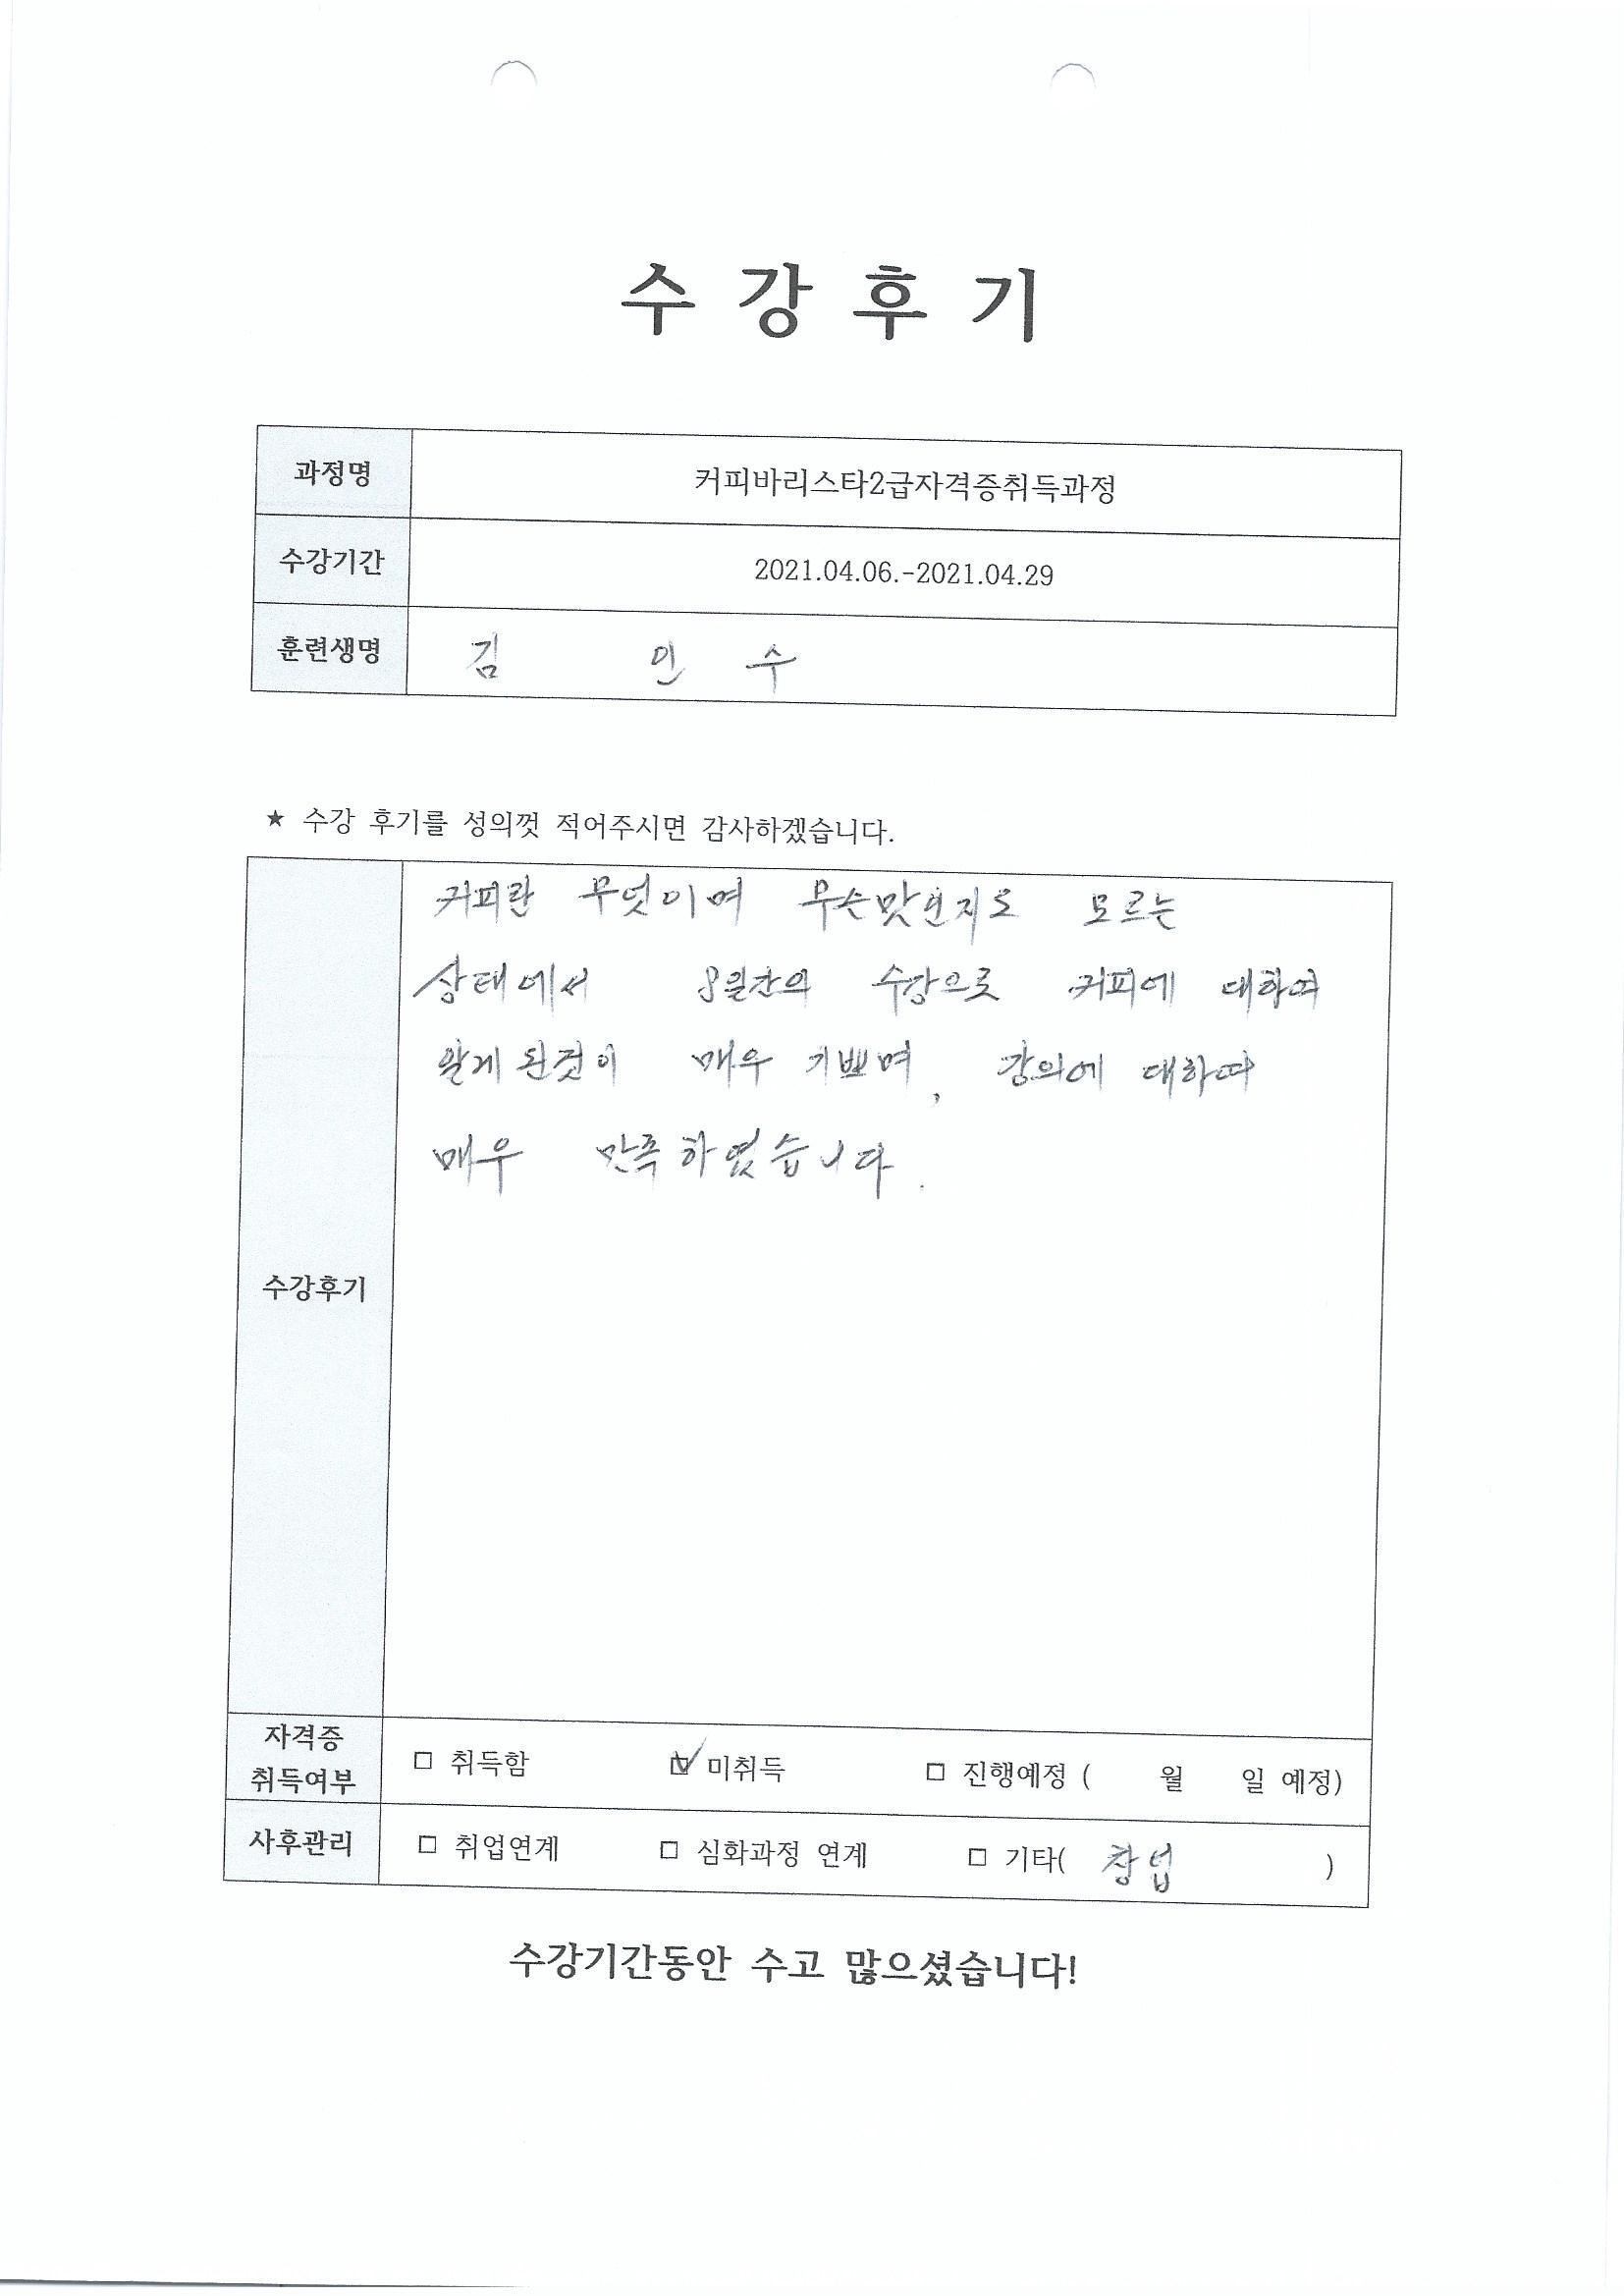 수 강 후 기
과정명 커피바리스타2급자격증취득과정
수강기간 2021.04.06.-2021.04.29
훈련생명 김 인 수
★ 수강 후기를 성의껏 적어주시면 감사하겠습니다.
커피란 무엇이며 무슨맛인지도 모르는
상태에서 8일간의 수강으로 커피에 대하여
알게된것이 매우 기쁘며, 강의에 대하여
매우 만족하였습니다.
수강후기
자격증
취득여부 □ 취득함 ☑ 미취득 □ 진행예정 ( 월 일 예정)
사후관리 □ 취업연계 □ 심화과정 연계 □ 기타( 창업 )
수강기간동안 수고 많으셨습니다!